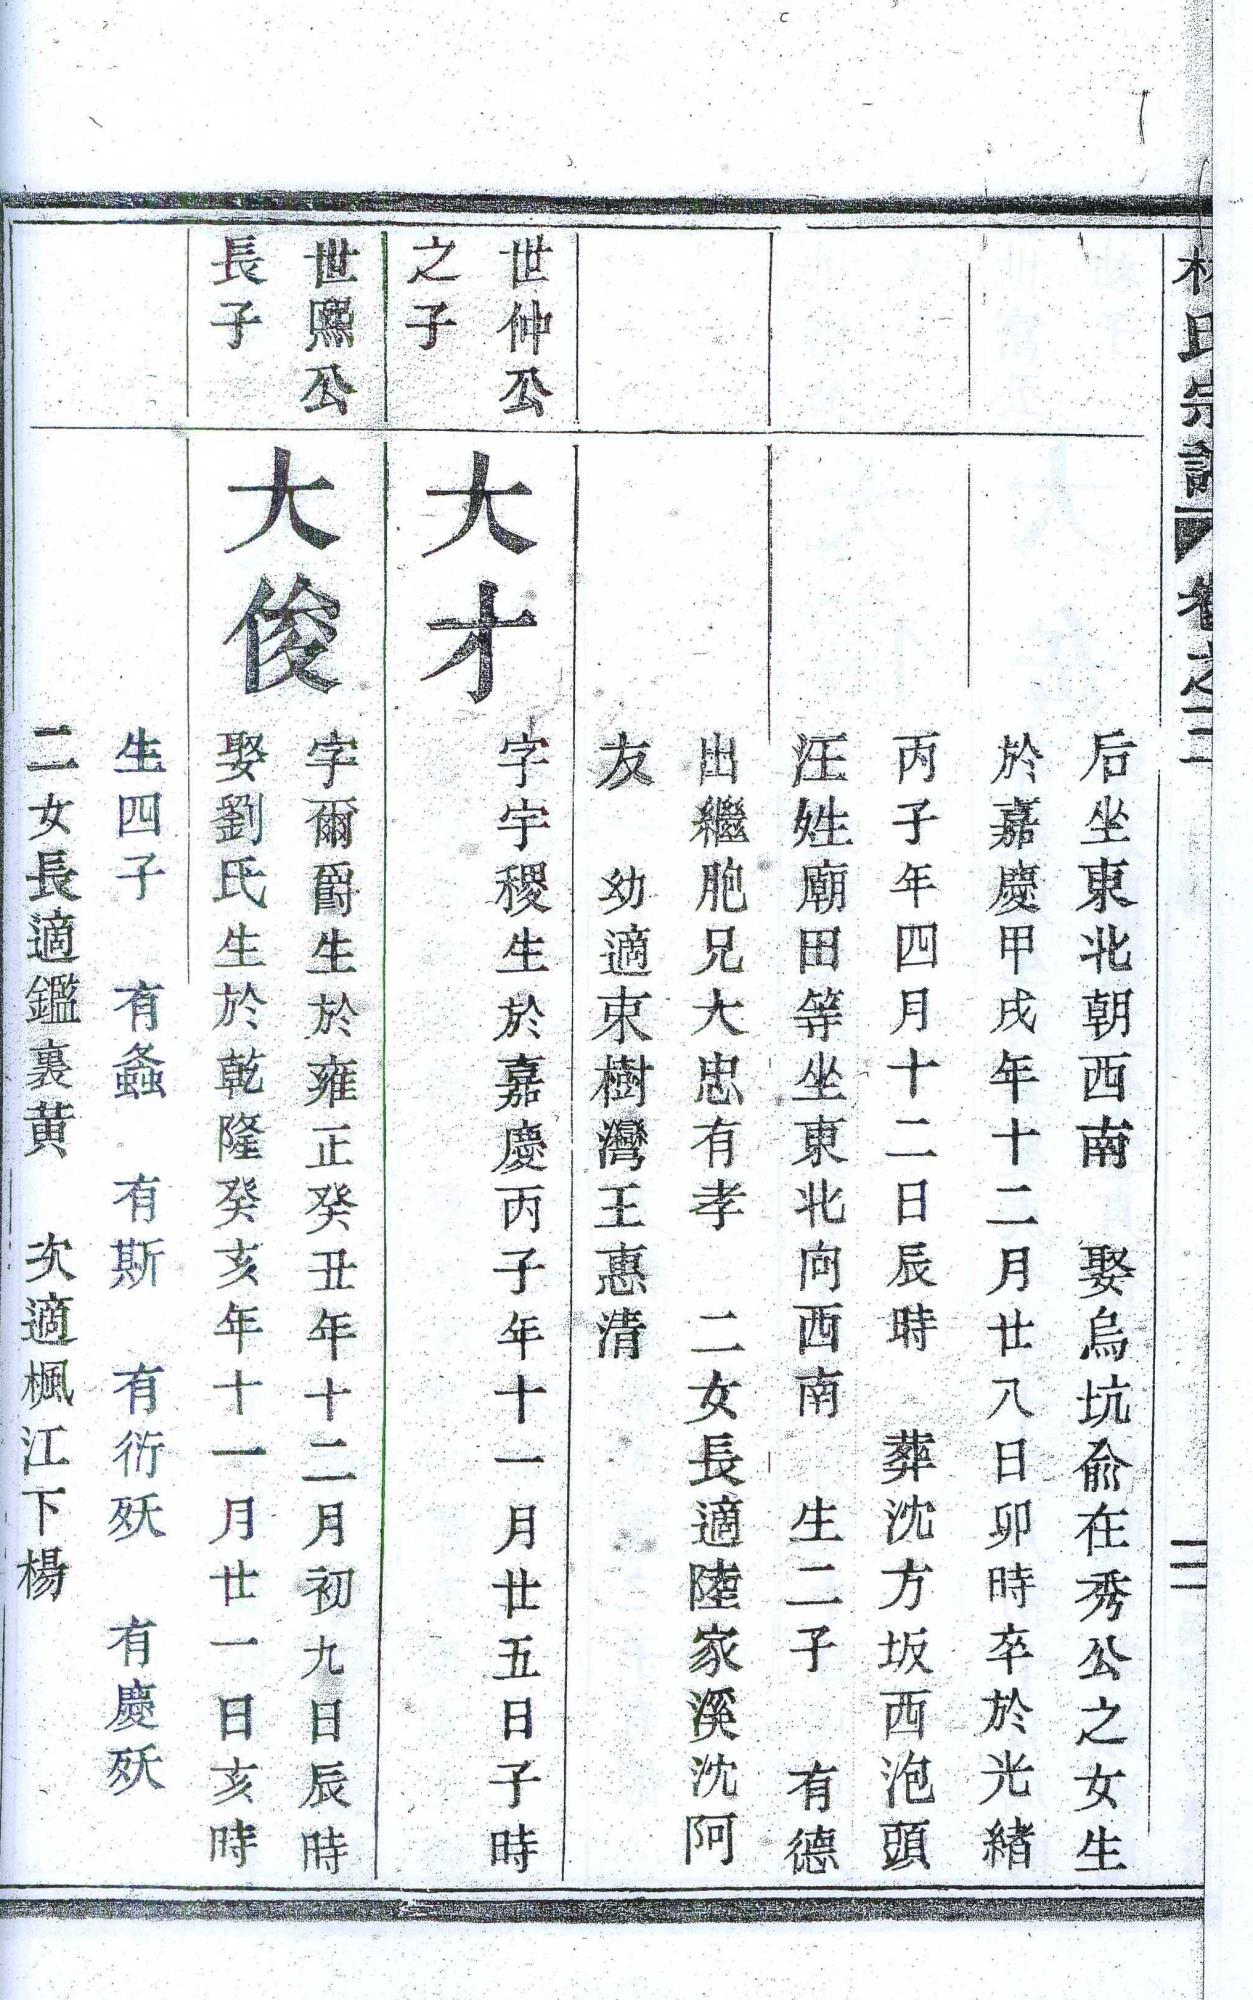 林氏宗譜 卷之二 二
后坐東北朝西南 娶烏坑俞在秀公之女生
於嘉慶甲戌年十二月廿八日卯時卒於光緖
丙子年四月十二日辰時 葬沈方坂西泡頭
汪姓廟田等坐東北向西南 生二子 有德
出繼胞兄大忠有孝 二女長適陸家溪沈阿
友 幼適東樹灣王惠清
世仲公
之子
大才
字宇稷生於嘉慶丙子年十一月廿五日子時
世熈公
長子
大俊
字爾爵生於雍正癸丑年十二月初九日辰時
娶劉氏生於乾隆癸亥年十一月廿一日亥時
生四子 有螽 有斯 有衍殀 有慶殀
二女長適鑑裏黃 次適楓江下楊